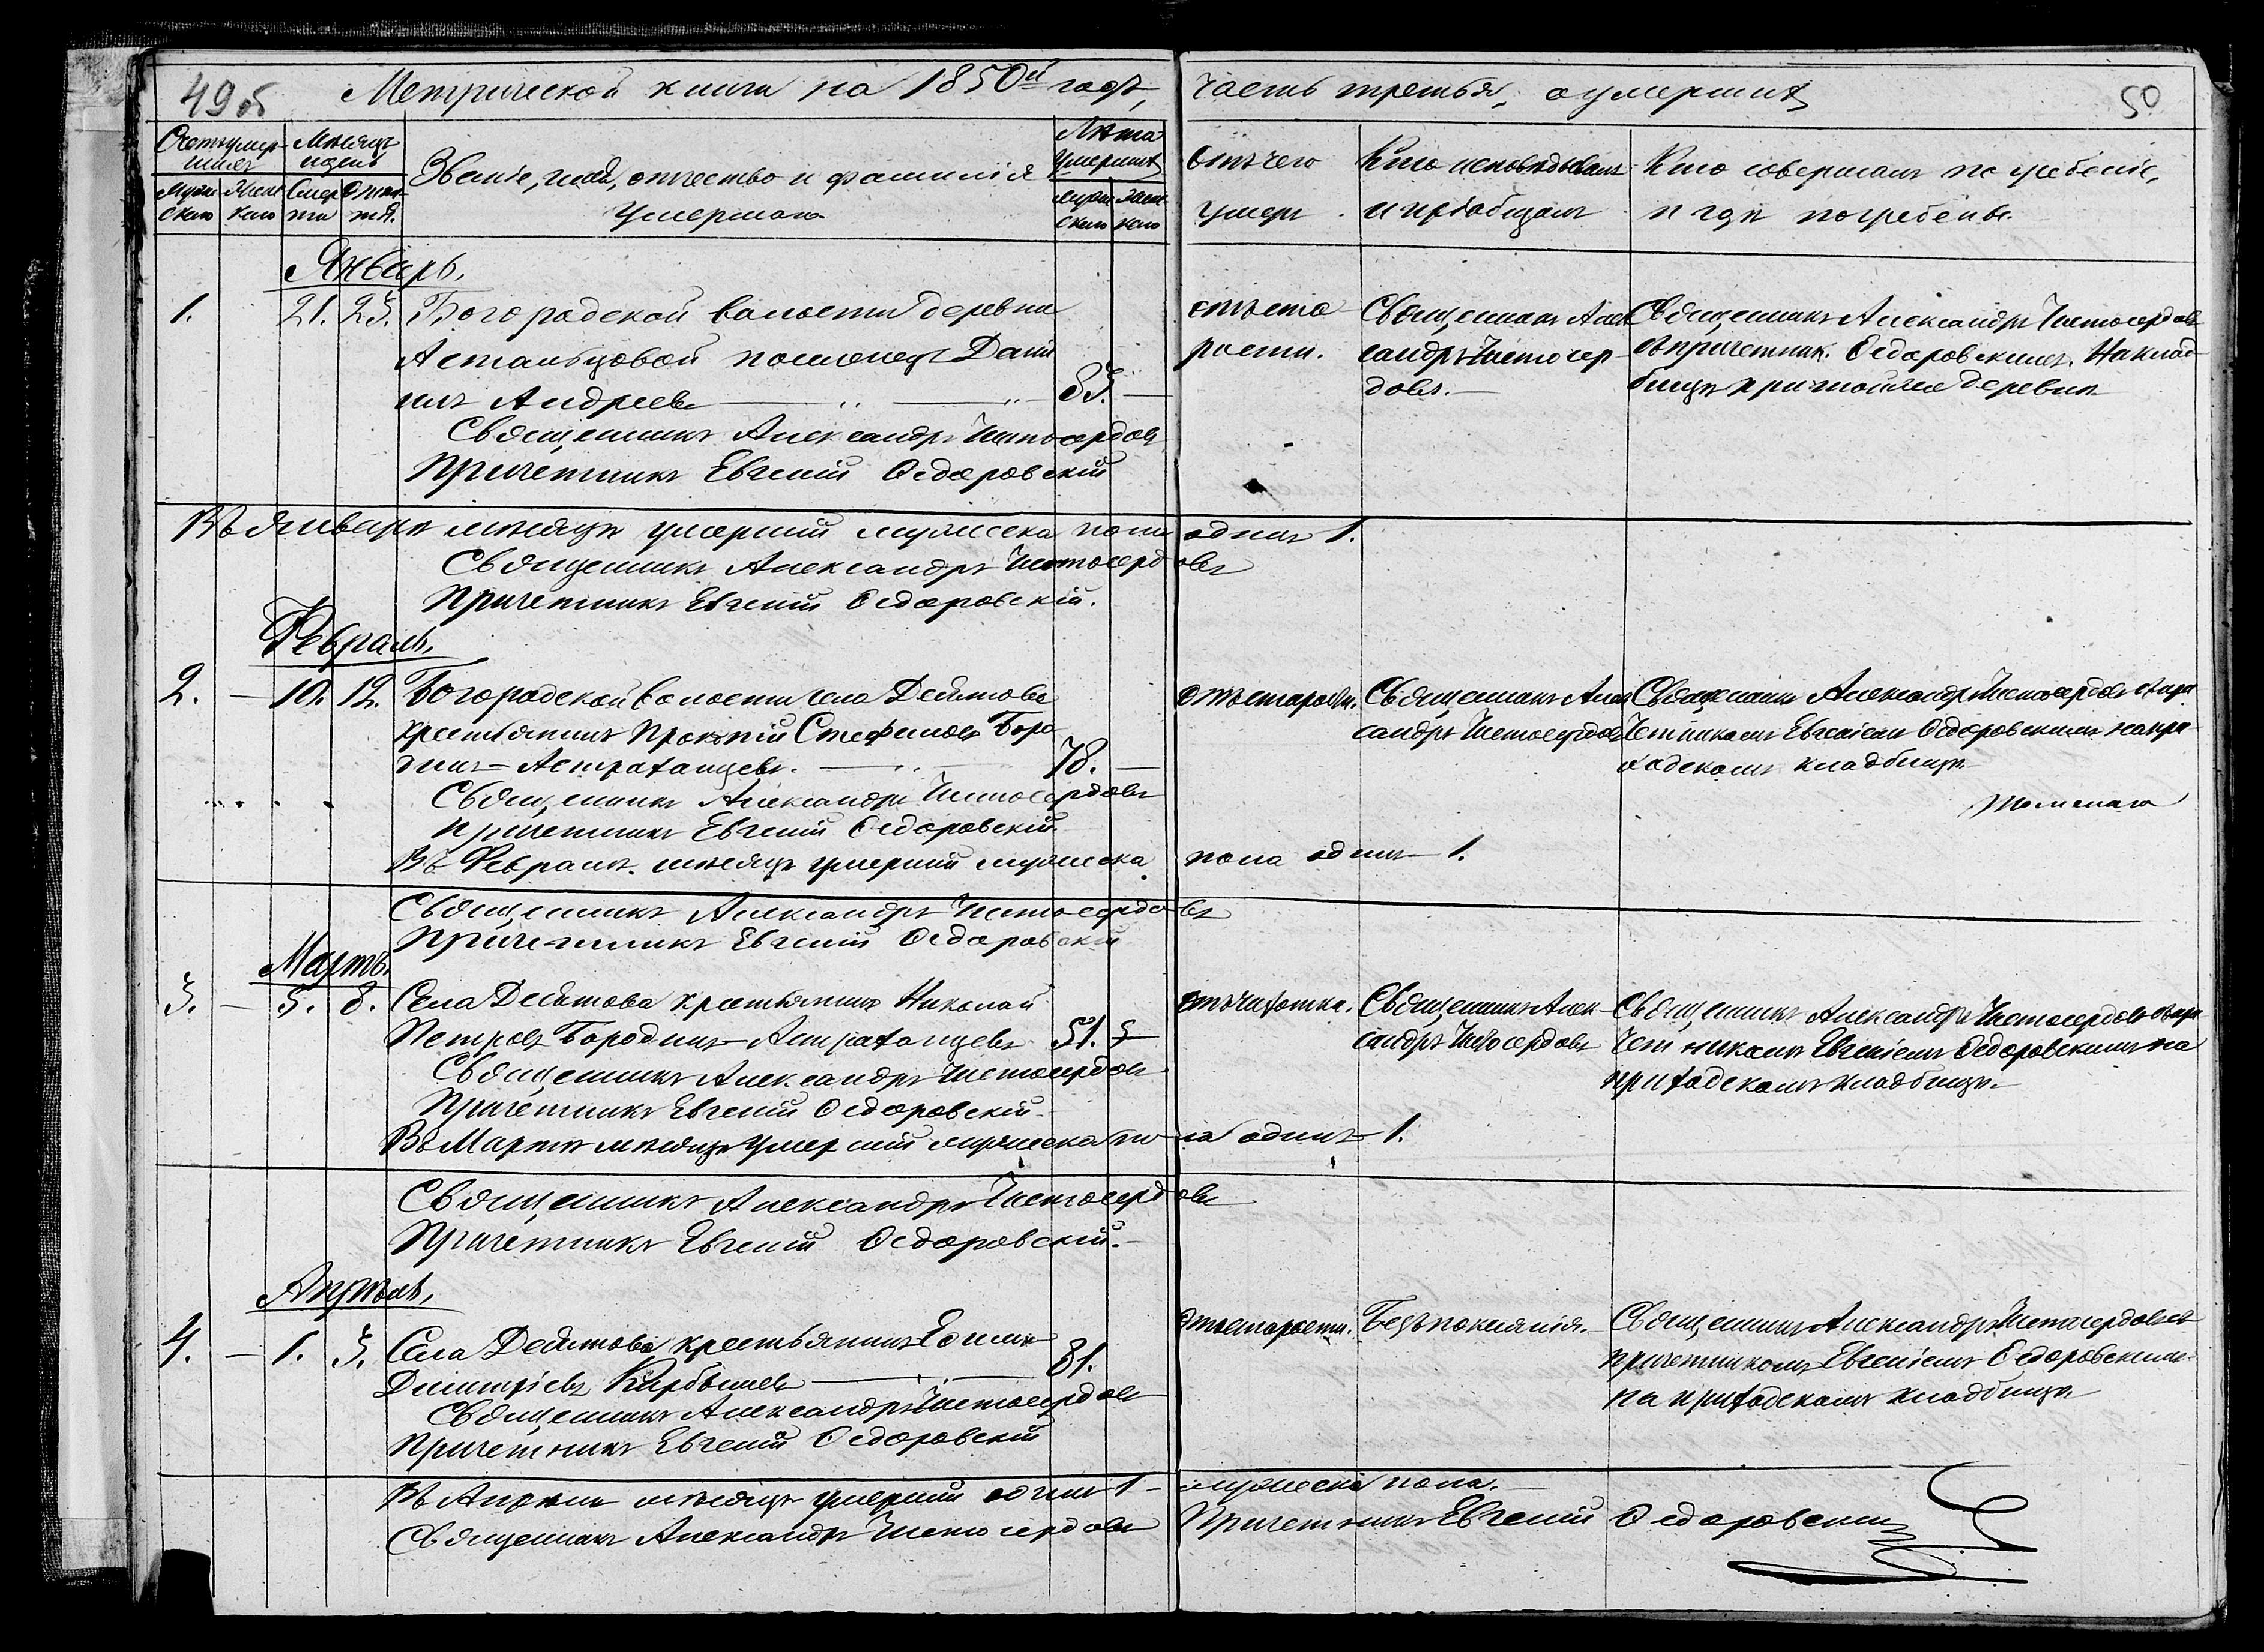 49 об
Метрической книги на 1850й годъ,
часть третья, о умершихъ
50
Счетъ умер-
шихъ
Мѣсяцъ
и день
Званіе, имя, отчество и фамилія
умершаго
Лѣта
умершихъ
Муже
скаго
Жен
скаго
Смер
ти
Муже
скаго
Жен
скаго
Отъ чего
умеръ
Кто исповѣдывалъ
и пріобщалъ
Кто совершалъ погребеніе,
и гдѣ погребены.
Январь.
1. 21. 23. Богородской волости деревни
Астальцовой поселенецъ Дани
илъ Андреевъ 83.
Священникъ Александръ Чистосердовъ
Причетникъ Евгеній Ѳедоровскій
отъ ста
рости.
Священникъ Алек
сандръ Чистосер
довъ.
Священникъ Александръ Чистосердовъ
съ причетник. Ѳедоровскимъ. На клад
бищѣ при той же деревни
Въ Январѣ мѣсяцѣ умершій мужеска пола одинъ 1.
Священникъ Александръ Чистосердовъ
Причетникъ Евгеній Ѳедоровскій.
Февраль.
2. – 10. 12. Богородской волости села Десятова
крестьянинъ Прокпій Стефановъ Боро
динъ – Астраханцевъ. 78.
Священникъ Александръ Чистосердовъ
Причетникъ Евгеній Ѳедоровскій.
отъ старости.
Священникъ Алек
сандръ Чистосердовъ
Священникъ Александръ Чистосердовъ съ при
четникомъ Евгеніемъ Ѳедоровскимъ на при
ходскомъ кладбищѣ
Въ Февралѣ мѣсяцѣ умершій мужеска пола одинъ – 1.
Священникъ Александръ Чистосердовъ
Причетникъ Евгеній Ѳедоровскій
Мартъ.
3. – 5. 8. Села Десятова крестьянинъ Николай
Петровъ Бородинъ – Астраханцевъ 51.
Священникъ Александръ Чистосердовъ
Причетникъ Евгеній Ѳедоровскій.
отъ чихотки.
Священникъ Алек-
сандръ Чистосердовъ
Священникъ Александръ Чистосердовъ съ при
четникомъ Евгеніемъ Ѳедоровскимъ на
приходскомъ кладбищѣ.
Въ Мартѣ мѣсяцѣ умершій мужеска пола одинъ – 1.
Священникъ Александръ Чистосердовъ
Причетникъ Евгеній Ѳедоровскій.
Апрѣль,
4. – 1. 3. Села Десятова крестьянинъ
Димитріевъ Карбышевъ 81.
Священникъ Александръ Чистосердовъ
Причетникъ Евгеній Ѳедоровскій
отъ старости.
Безъ покаянія.
Священникъ Александръ Чистосердовъ съ
причетникомъ Евгеніемъ Ѳедоровскимъ
на приходскомъ кладбищѣ
Въ Апрѣлѣ мѣсяцѣ умершій одинъ 1 – мужеска пола.
Священникъ Александръ Чистосердовъ Причетникъ Евгеній Ѳедоровскій